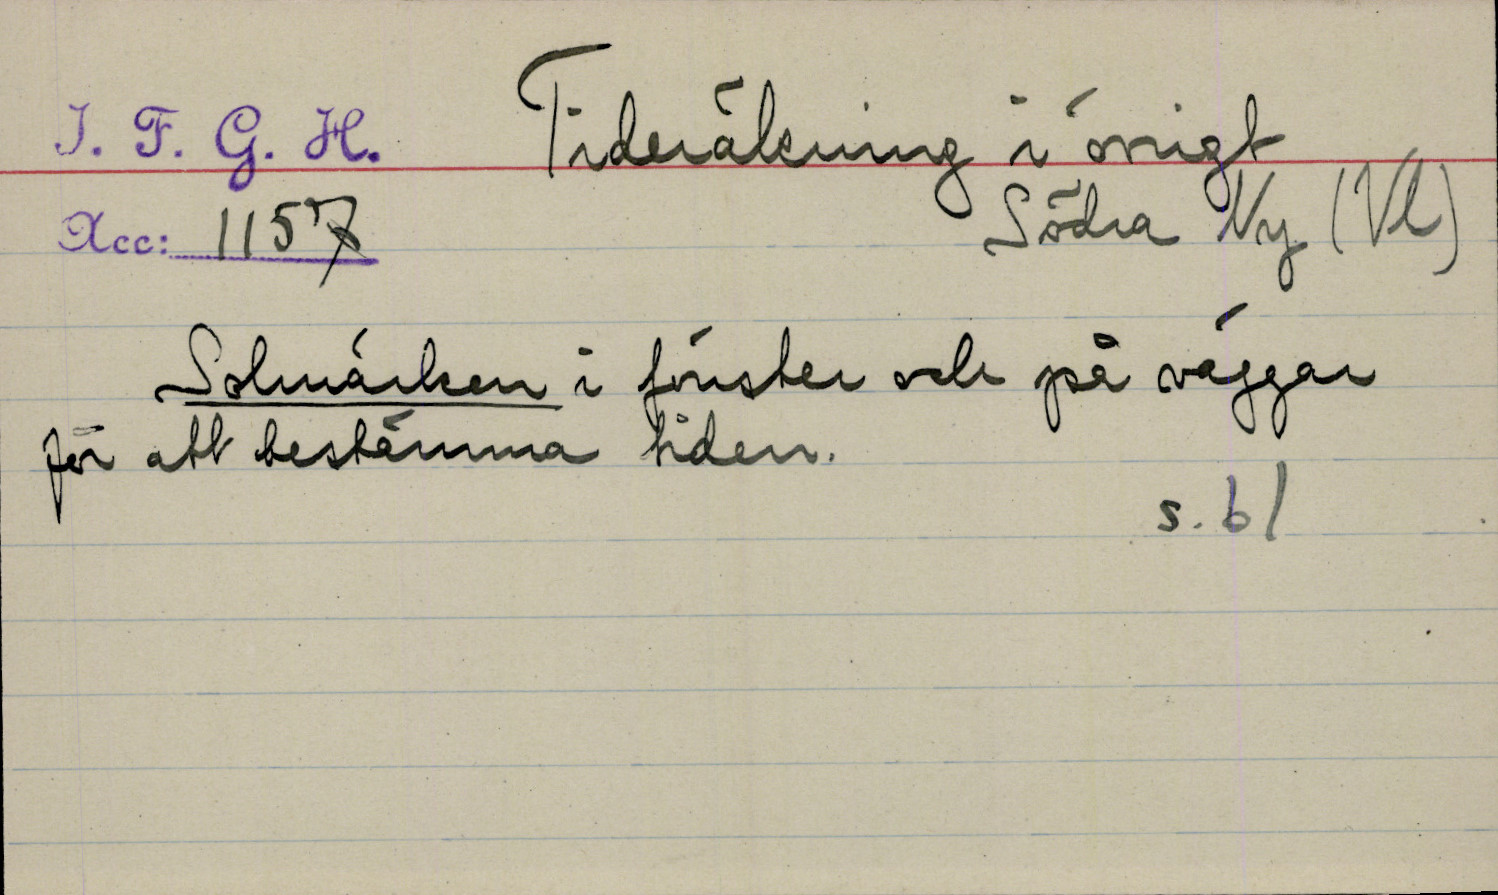 I. F. G. H. Tideräkning i övrigt
Acc: 1157 Södra Ny (Vl)
Solmärken i fönster och på väggar
för att bestämma tiden.
s. 61